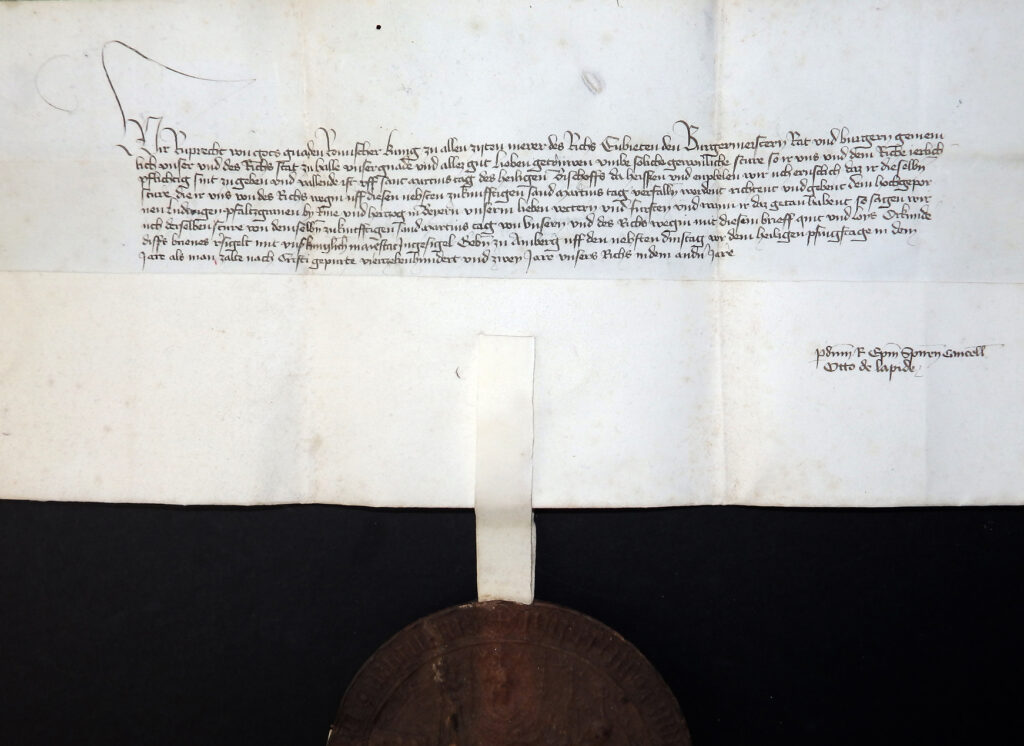 Wir Ruprecht von gots gnaden Romischer kunig zu allen zyten merer des Richs Enbieten den Burgermeistern Rat und burgern gemein
lich unser und des Richs stat zu halle unser gnade und alles gut Lieben getruwen umbe soliche gewonliche sture so ir uns und dem Riche ierlich
pflichtig sint zugeben und vallende ist uff sanct martins tag des heiligen Bischoffs da heissen und enpfelen wir uch ernstlich daz ir dieselben
sture die ir uns von des Richs wegen uff diesen nehsten zukunfftigen sand martins tag verfallen werdent richtent und gebent dem hochgepor
nen Ludwigen pfaltzgraven by Rine und hertzog in Beyern unserm lieben vettern und fursten und wann ir daz getan habent so sagen wir
uch derselben sture von demselben zukunfftigen sand martins tag von unsern und des Richs wegen mit diesem brieff quit und loss Orkunde
diss brieves versigelt mit unser kunglich maiestat ingesigel Geben zu Amberg uff den nehsten dinstag vor dem heiligen pfingstage in dem
Jare als man zalte nach Cristi gepurte viertzehenhundert und zwey Jare unsers Richs in dem andern Jare
p dnm R Epm Spiren Cancell
Otto de lapide